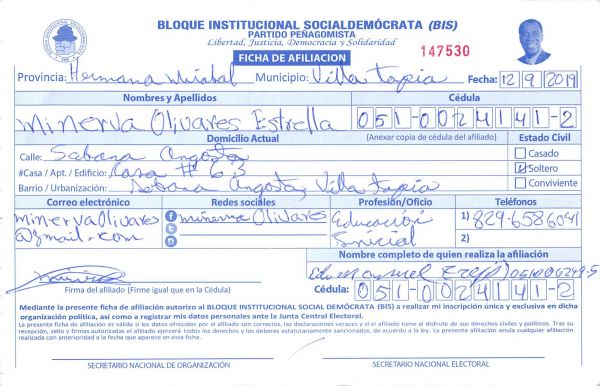 BLOQUE INSTITUCIONAL SOCIALDEMÓCRATA (BIS)
PARTIDO PEÑAGOMISTA
Libertad, Justicia, Democracia y Solidaridad
FICHA DE AFILIACION
147530
Provincia: Hermana Mirabal Municipio: Villa Tapia Fecha: 12 9 2019
Nombres y Apellidos Cédula
Minerva Olivares Estrella 051-0024141-2
Domicilio Actual (Anexar copia de cédula del afiliado) Estado Civil
Calle: Sabana Angosta Casado
#Casa / Apt. / Edificio: Casa # 63 Soltero
Barrio / Urbanización: Sabana Angosta, Villa Tapia Conviviente
Correo electrónico Redes sociales Profesión/Oficio Teléfonos
MinervaOlivares minerva Olivares Educación 1) 829-6586041
@gmail.com Inicial 2)
Nombre completo de quien realiza la afiliación
Firma del afiliado (Firme igual que en la Cédula) Cédula: 051-0024141-2
Mediante la presente ficha de afiliación autorizo al BLOQUE INSTITUCIONAL SOCIAL DEMÓCRATA (BIS) a realizar mi inscripción única y exclusiva en dicha
organización política, así como a registrar mis datos personales ante la Junta Central Electoral.
La presente ficha de afiliación es válida si los datos ofrecidos por el afiliado son correctos, las declaraciones veraces y si el afiliado tiene el disfrute de sus derechos civiles y políticos. Tras su
recepción, sello y firmas autorizadas el afiliado ejercerá todos los derechos y los deberes estatutariamente sancionados, de acuerdo a la ley. La presente afiliación anula cualquier afiliación
realizada con anterioridad a la fecha que aparece en esta ficha.
SECRETARIO NACIONAL DE ORGANIZACIÓN SECRETARIO NACIONAL ELECTORAL